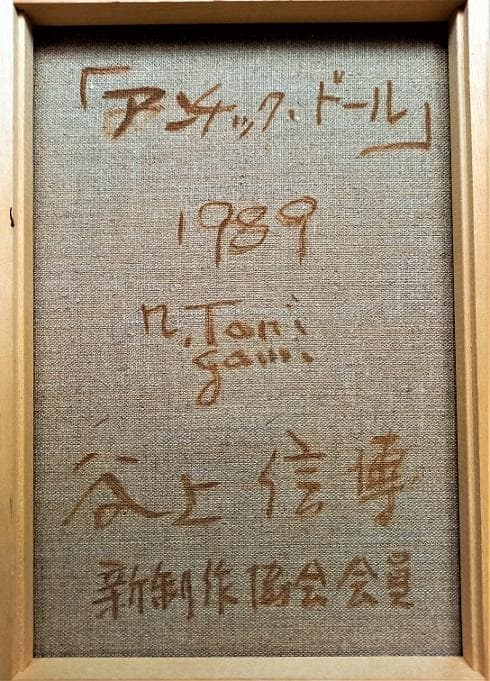 「アンチック・ドール」
1989
n. Tani
gami
谷上信博
新制作協会会員